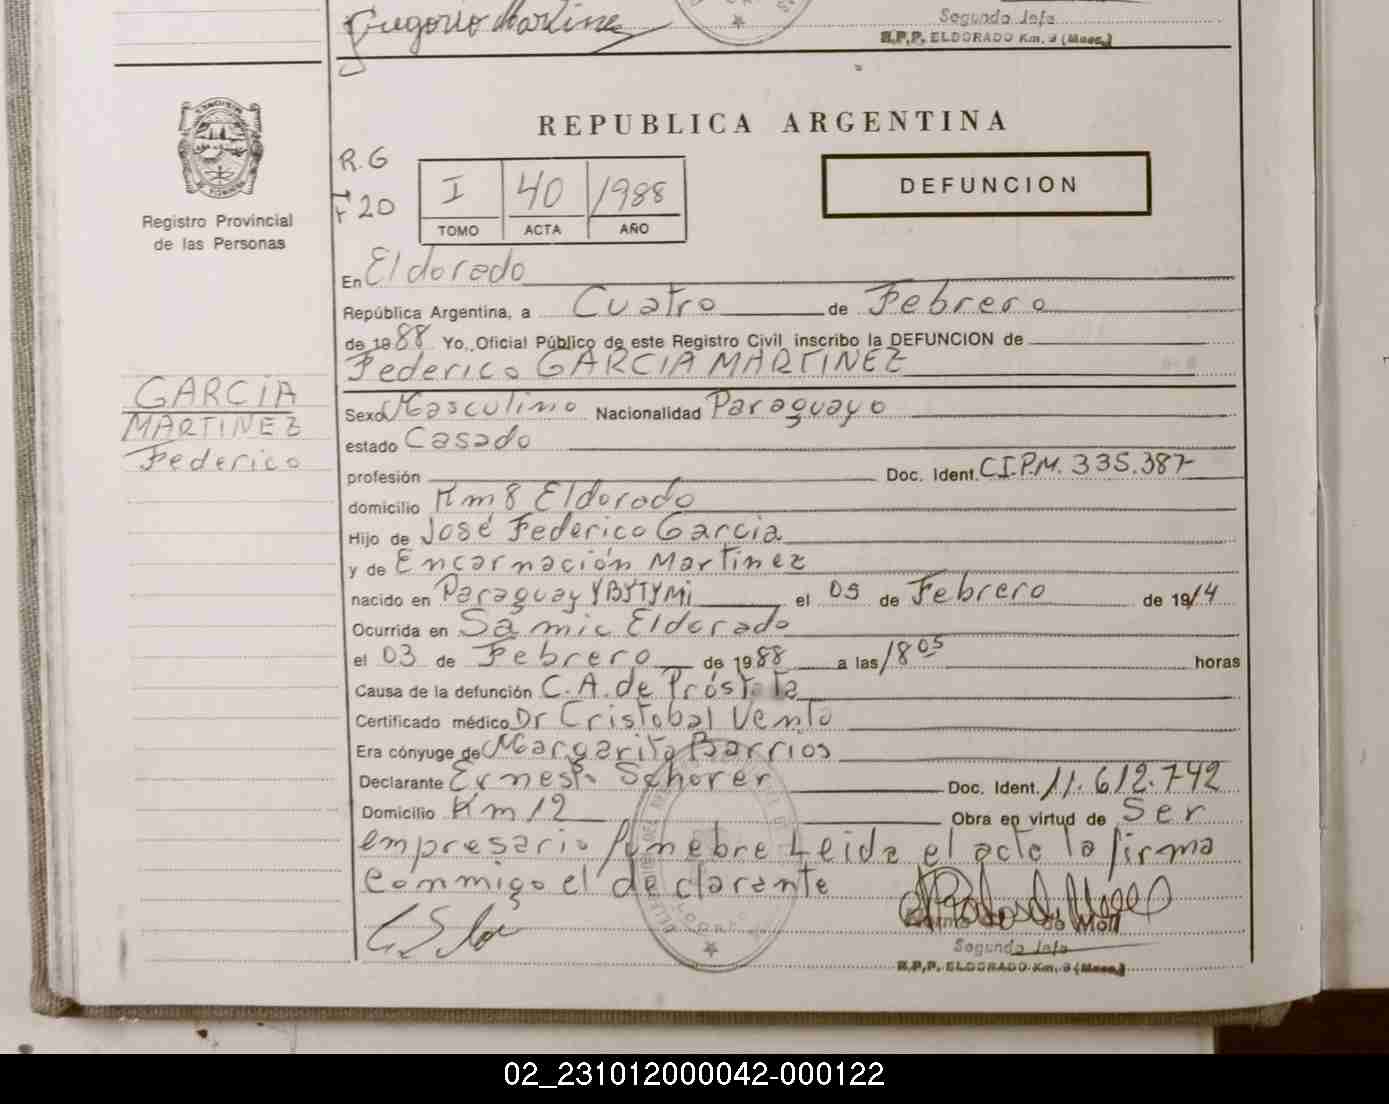 Gregorio Martinez
Segundo Jefe
R.P.P. ELDORADO Km. 9 (Mnes.)
REPUBLICA ARGENTINA
Registro Provincial
de las Personas
R.G
F 20
I 40 1988
TOMO ACTA AÑO
DEFUNCION
En Eldorado
República Argentina, a Cuatro de Febrero
de 1988 Yo, Oficial Público de este Registro Civil inscribo la DEFUNCION de
Federico GARCIA MARTINEZ
GARCIA
MARTINEZ
Federico
Sexo Masculino Nacionalidad Paraguayo
estado Casado
profesión Doc. Ident. C.I.P.M. 335.387
domicilio Km 8 Eldorado
Hijo de José Federico Garcia
y de Encarnación Martinez
nacido en Paraguay YBYTYMi el 05 de Febrero de 1914
Ocurrida en Samic Eldorado
el 03 de Febrero de 1988 a las 18 05 horas
Causa de la defunción C.A. de Próstata
Certificado médico Dr Cristobal Vento
Era cónyuge de Margarita Barrios
Declarante Ernesto Schorer Doc. Ident. 11.612.742
Domicilio Km 12 Obra en virtud de Ser
empresario fúnebre Leida el acta la firma
conmmigo el declarante
Segundo Jefe
R.P.P. ELDORADO Km. 9 (Mnes.)
02_231012000042-000122